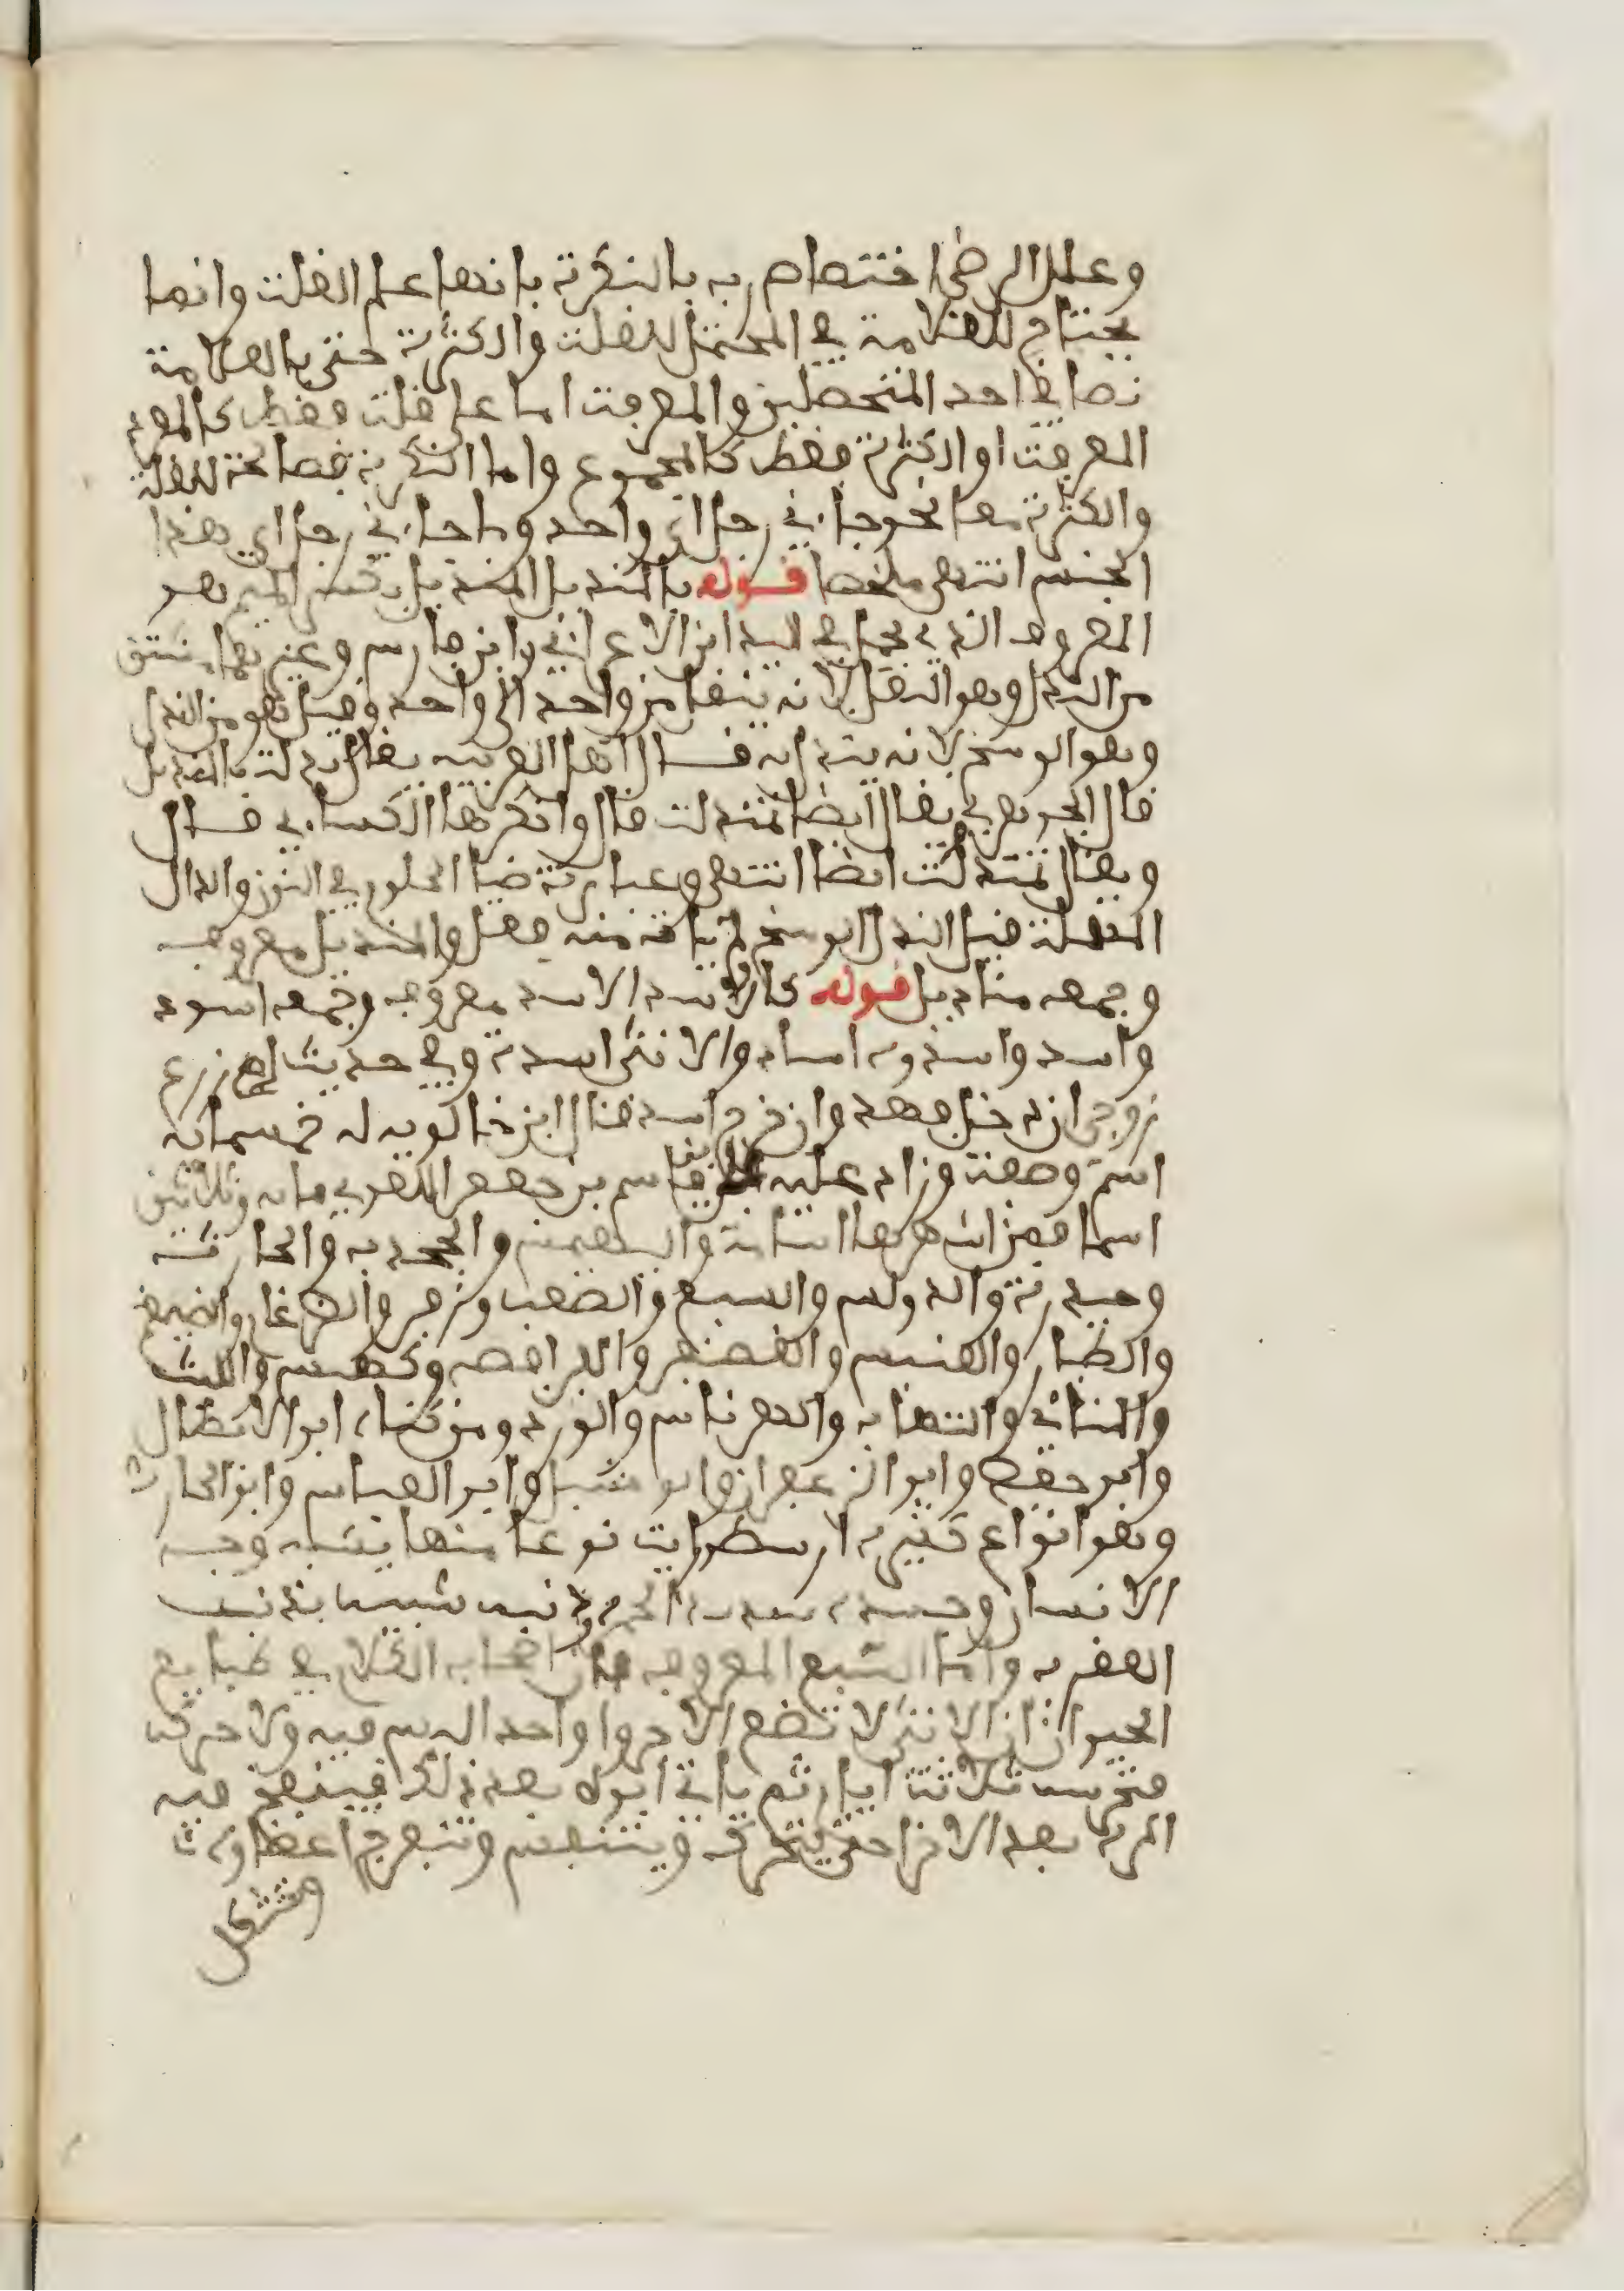 وعلل الرضي اختصاص رب بالنكرة بانها علم القلة وانما
يحتاج للعلامة في المحتمل للقلة والكثرة حتى بالعلامة
نصا في احد المتحملين والمعرفة اما على قلة فقط كالمفرد
المعرفة او الكثرة فقط كالمجموع واما النكرة فصالحة للقلة
والكثرة معا نحو جاءني رجل اي واحد وما جاءني رجل اي هذا
الجنس انتهى ملخصا قوله بالمنديل المنديل بكسر الميم وهو
المعروف الذي يحمل في اليد ابن الاعرابي وابن فارس وغيرهما مشتق
من الندل وهو النقل لانه ينقل من واحد الى واحد وقيل هو من الندل
وهو الوسخ لانه يندل به قال اهل العربية يقال تندلت بالمنديل
قال الجوهري يقال ايضا تمندلت قال وانكرها الكسائي قال
ويقال تمندلت ايضا انتهى وعبارة ضيا الحلوم في النون والدال
المهملة قيل الندل الوسخ لم يات منه فعل والمنديل معروف
وجمعه مناديل قوله كالاسد الاسد معروف وجمعه اسود
واسد واسد وء اساد والانثى اسدة وفي حديث ام زرع
زوجي ان دخل فهد وان خرج اسد قال ابن خالويه له خمسمائة
اسم وصفة وزاد عليه ابن قاسم بن جعفر اللغوي مائة وثلاثين
اسما فمن اشهرها اسامة والبيهس والجخدب والحارث
وحيدرة والدولس والسبع والصعب وزفر والضرغام والضيغم
والطيثار والعنبس والغضنفر والفرافصة وكهمس والليث
والمتانس والمتهيب والهرماس والورد ومن كناه ابو الابطال
وابو حفص وابو الزعفران وابو شبل وابو العباس وابو الحارث
وهو انواع كثيرة ارسطو رايت نوعا منها يشبه وجه
الانسان وجسده شديد الحمرة وذنبه شبيه بذنب
العقرب واما السبع المعروف فان اصحاب الكلام في طبايع
الحيوان ان الانثى لا تضع الا جروا واحدا ليس فيه ولا حركة
فتحرسه ثلاثة ايام ثم ياتي ابوه بعد ذلك فينفخ فيه
المرة بعد الاخرى حتى يتحرك ويتنفس وتنفرج اعضاؤه
وتتشكل